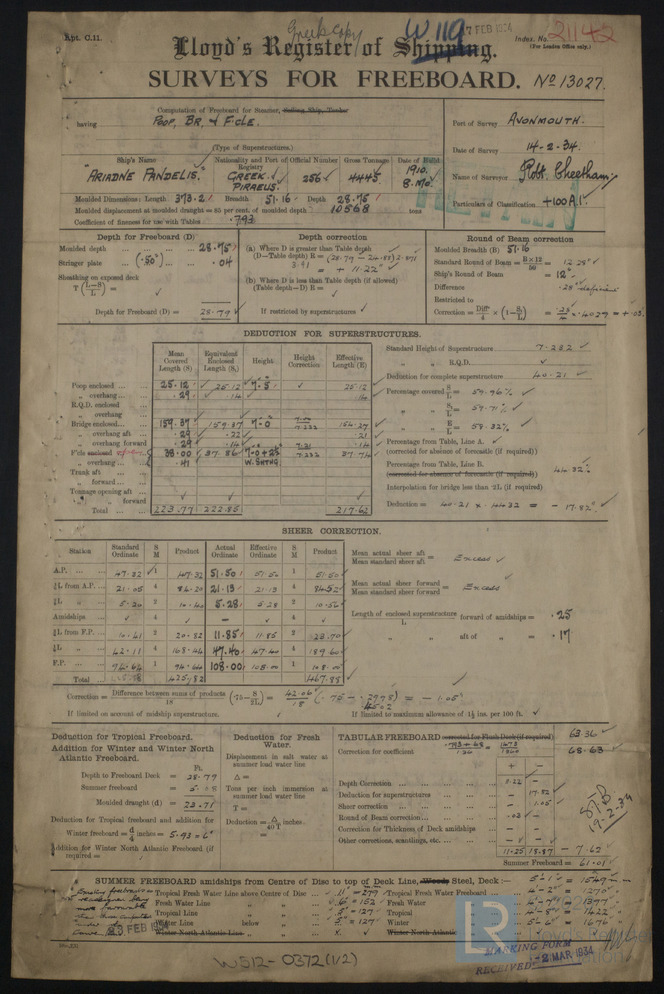 Rpt. C.11.
Greek copy
W119
7 FEB 1934
Index. No. 21142
(For London Office only.)
Lloyd's Register of Shipping.
SURVEYS FOR FREEBOARD. No 13027.
Computation of Freeboard for Steamer, Sailing Ship, Tanker
having Poop, Br, & F'cle.
(Type of Superstructures.)
Port of Survey AVONMOUTH.
Date of Survey 14-2-34.
Name of Surveyor Robt Cheetham
Particulars of Classification +100A1.
Ship's Name
Nationality and Port of Registry
Official Number
Gross Tonnage
Date of Build
"ARIADNE PANDELIS."
GREEK. PIRAEUS.
256
4445
1910. 8.MO.
Moulded Dimensions: Length 373.2 Breadth 51.16 Depth 28.75
Moulded displacement at moulded draught = 85 per cent. of moulded depth 10568 tons
Coefficient of fineness for use with Tables .793
Depth for Freeboard (D)
Moulded depth ... 28.75
Stringer plate ... (.50") .04
Sheathing on exposed deck
T (L-S/L) =
Depth for Freeboard (D) = 28.79
Depth correction
(a) Where D is greater than Table depth
(D—Table depth) R = (28.79 - 24.88) 2.871
3.91
= + 11.22"
(b) Where D is less than Table depth (if allowed)
(Table depth—D) R =
If restricted by superstructures
Round of Beam correction
Moulded Breadth (B) 51.16
Standard Round of Beam = B×12/50 = 12.28"
Ship's Round of Beam = 12"
Difference .28" deficient
Restricted to
Correction = Diff/4 × (1-S/L) = .28/4 × .4029 = + .03
DEDUCTION FOR SUPERSTRUCTURES.
Mean Covered Length (S)
Equivalent Enclosed Length (S₁)
Height
Height Correction
Effective Length (E)
Poop enclosed ... 25.12 25.12 7.5 25.12
„ overhang ... .29 .14 .14
R.Q.D. enclosed
„ overhang
Bridge enclosed ... 159.37 159.37 7-0 7.00/7.232 154.27
„ overhang aft .29 .22 .21
„ overhang forward .29 .14 .14
F'cle enclosed 38.00 37.86 7-0+2½ W.SHTNG. 7.21/7.232 37.74
„ overhang ... .41
Trunk aft
„ forward ...
Tonnage opening aft
„ „ forward
Total ... 223.77 222.85 217.62
Standard Height of Superstructure 7.232
„ „ R.Q.D.
Deduction for complete superstructure 40.21
Percentage covered S/L = 59.96%
„ „ S₁/L = 59.71%
„ „ E/L = 58.32%
Percentage from Table, Line A.
(corrected for absence of forecastle (if required))
Percentage from Table, Line B.
(corrected for absence of forecastle (if required))
44.32%
Interpolation for bridge less than .2L (if required)
Deduction = 40.21 × .4432 = - 17.82"
SHEER CORRECTION.
Station
Standard Ordinate
S M
Product
Actual Ordinate
Effective Ordinate
S M
Product
A.P. ... 47.32 1 47.32 51.50 51.50 1 51.50
⅙L from A.P. ... 21.05 4 84.20 21.13 21.13 4 84.52
⅓L „ 5.20 2 10.40 5.28 5.28 2 10.56
Amidships
⅓L from F.P. ... 10.41 2 20.82 11.85 11.85 2 23.70
⅙L „ 42.11 4 168.44 47.40 47.40 4 189.60
F.P. ... 94.64 1 94.64 108.00 108.00 1 108.00
Total ... 425.82 467.88
Mean actual sheer aft / Mean standard sheer aft = Excess
Mean actual sheer forward / Mean standard sheer forward = Excess
Length of enclosed superstructure / L forward of amidships = .25
„ „ aft of „ = .17
Correction = Difference between sums of products/18 (.75 - S/2L) = 42.06/18 (.75 - .2998) = - 1.05"
.4502
If limited on account of midship superstructure.
If limited to maximum allowance of 1½ ins. per 100 ft.
Deduction for Tropical Freeboard.
Addition for Winter and Winter North Atlantic Freeboard.
Ft.
Depth to Freeboard Deck = 28.79
Summer freeboard = 5.08
Moulded draught (d) = 23.71
Deduction for Tropical freeboard and addition for
Winter freeboard = d/4 inches = 5.93 = 6"
Addition for Winter North Atlantic Freeboard (if required) =
Deduction for Fresh Water.
Displacement in salt water at summer load water line
Δ =
Tons per inch immersion at summer load water line
T =
Deduction = Δ/40T inches =
TABULAR FREEBOARD corrected for Flush Deck (if required) 63.36
Correction for coefficient .793+.68/1.36 = 1473/1360 68.63
+ -
Depth Correction ... 11.22
Deduction for superstructures ... 17.82
Sheer correction ... 1.05
Round of Beam correction ... .03
Correction for Thickness of Deck amidships
Other corrections, scantlings, etc. ...
11.25 18.87 - 7.62
Summer Freeboard = 61.01
19.2.34
SUMMER FREEBOARD amidships from Centre of Disc to top of Deck Line, Wood, Steel, Deck:— 5'-1" = 1549
Tropical Fresh Water Line above Centre of Disc ... 11" = 279 Tropical Fresh Water Freeboard ... 4'-2" = 1270
Fresh Water Line „ „ ... 6" = 152 Fresh Water „ ... 4'-7" = 1397
Tropical Line „ „ ... 5" = 127 Tropical „ ... 4'-8" = 1422
Winter Line below „ ... 5" = 127 Winter „ ... 5'-6" = 1676
Winter North Atlantic Line „ Winter North Atlantic „
23 FEB 1934
W512-0372(1/2)
MARKING FORM
RECEIVED -2 MAR 1934
LR
Lloyd's Register
Foundation